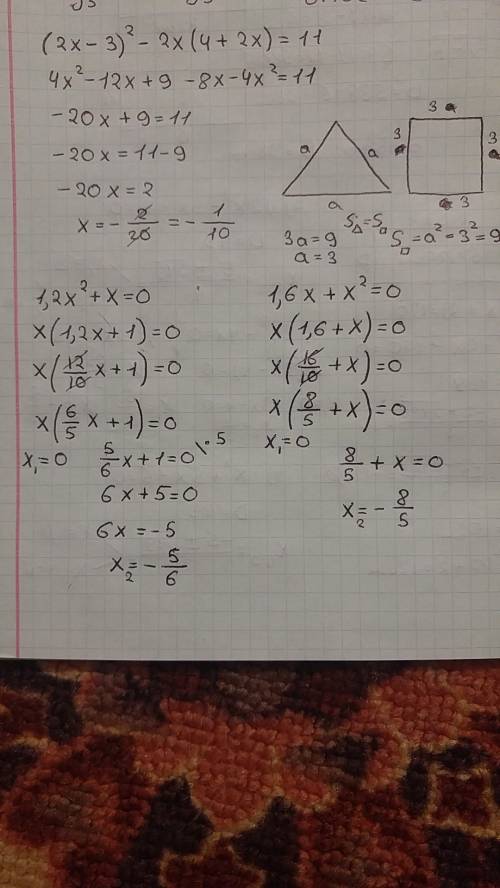 (2x - 3)² - 2x(4 + 2x) = 11
4x² - 12x + 9 - 8x - 4x² = 11
-20x + 9 = 11
-20x = 11 - 9
-20x = 2
x = -2/20 = -1/10
a a a
3 3 3 3
S△ = S□
3a = 9
a = 3
S□ = a² = 3² = 9
1,2x² + x = 0
x(1,2x + 1) = 0
x(12/10 x + 1) = 0
x(6/5 x + 1) = 0
x₁ = 0 5/6 x + 1 = 0 \·5
6x + 5 = 0
6x = -5
x₂ = -5/6
1,6x + x² = 0
x(1,6 + x) = 0
x(16/10 + x) = 0
x(8/5 + x) = 0
x₁ = 0
8/5 + x = 0
x₂ = -8/5